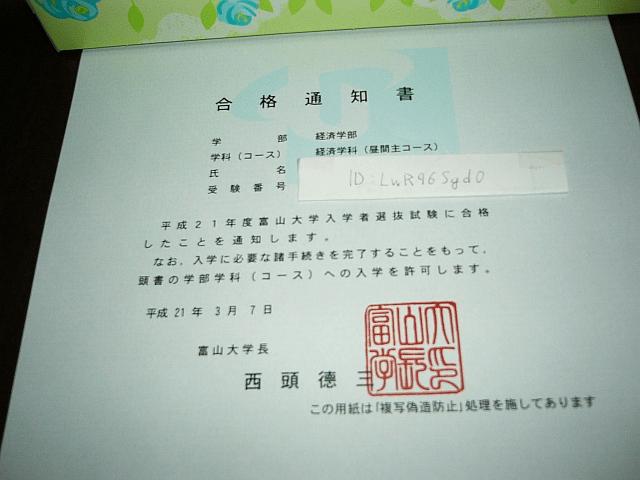 合格通知書
学部 経済学部
学科(コース) 経済学科(昼間主コース)
氏名
受験番号
ID:LwR96Sgd0
平成21年度富山大学入学者選抜試験に合格
したことを通知します。
なお、入学に必要な諸手続きを完了することをもって、
頭書の学部学科(コース)への入学を許可します。
平成21年 3月 7日
富山大学長
西頭德三
富山大学長印
この用紙は「複写偽造防止」処理を施してあります